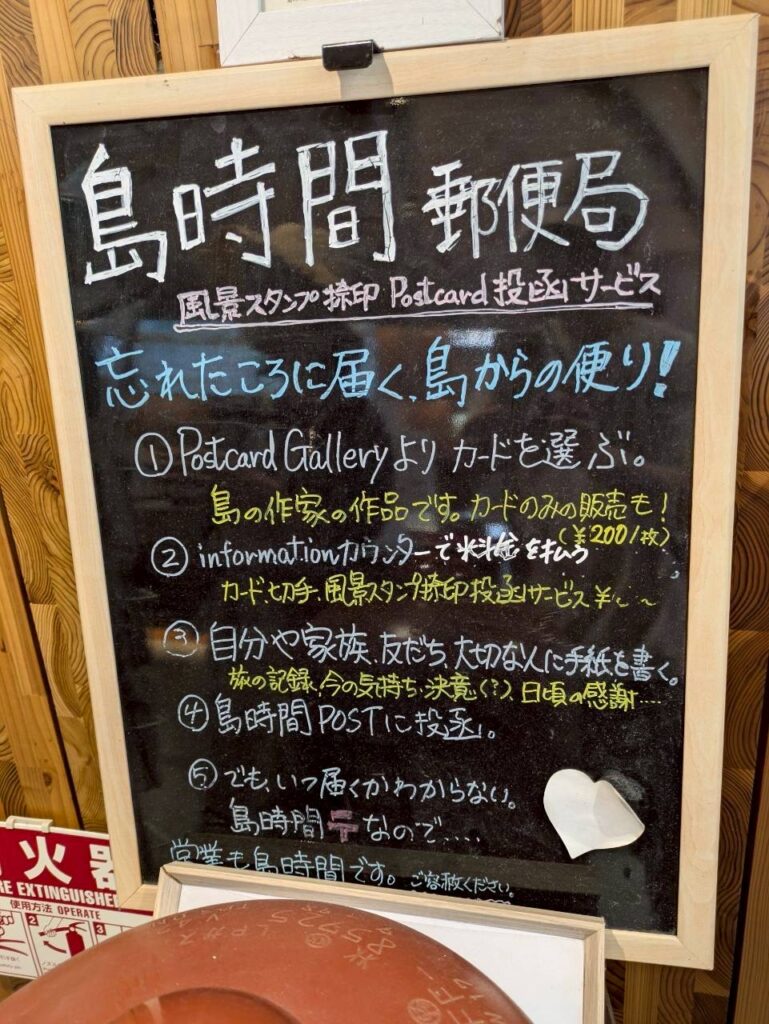 島時間 郵便局
風景スタンプ捺印 Postcard 投函サービス
忘れたころに届く、島からの便り!
① Postcard Gallery より カードを選ぶ。
島の作家の作品です。カードのみの販売も!
(¥200/枚)
② informationカウンターで料金を払う
カード、切手、風景スタンプ捺印投函サービス ¥~~
③ 自分や家族、友だち、大切な人に手紙を書く。
旅の記録、今の気持ち、決意(?)、日頃の感謝....
④ 島時間POSTに投函。
⑤ でも、いつ届くかわからない。
島時間〒なので....
営業も島時間です。ご容赦ください。
火器
RE EXTINGUISHER
使用方法 OPERATE
2
3